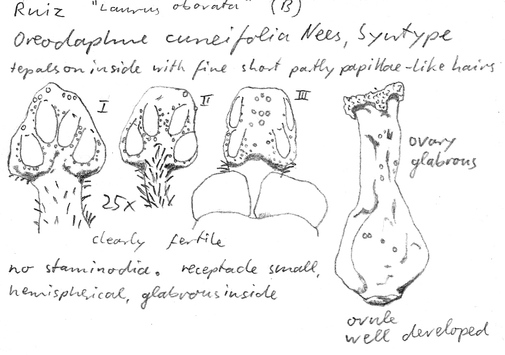 Ruiz "Laurus obovata" (B)
Oreodaphne cuneifolia Nees, Syntype
tepals on inside with fine short partly papillae-like hairs
I
II
III
ovary
glabrous
25x
clearly fertile
no staminodia. receptacle small,
hemispherical, glabrous inside
ovule
well developed